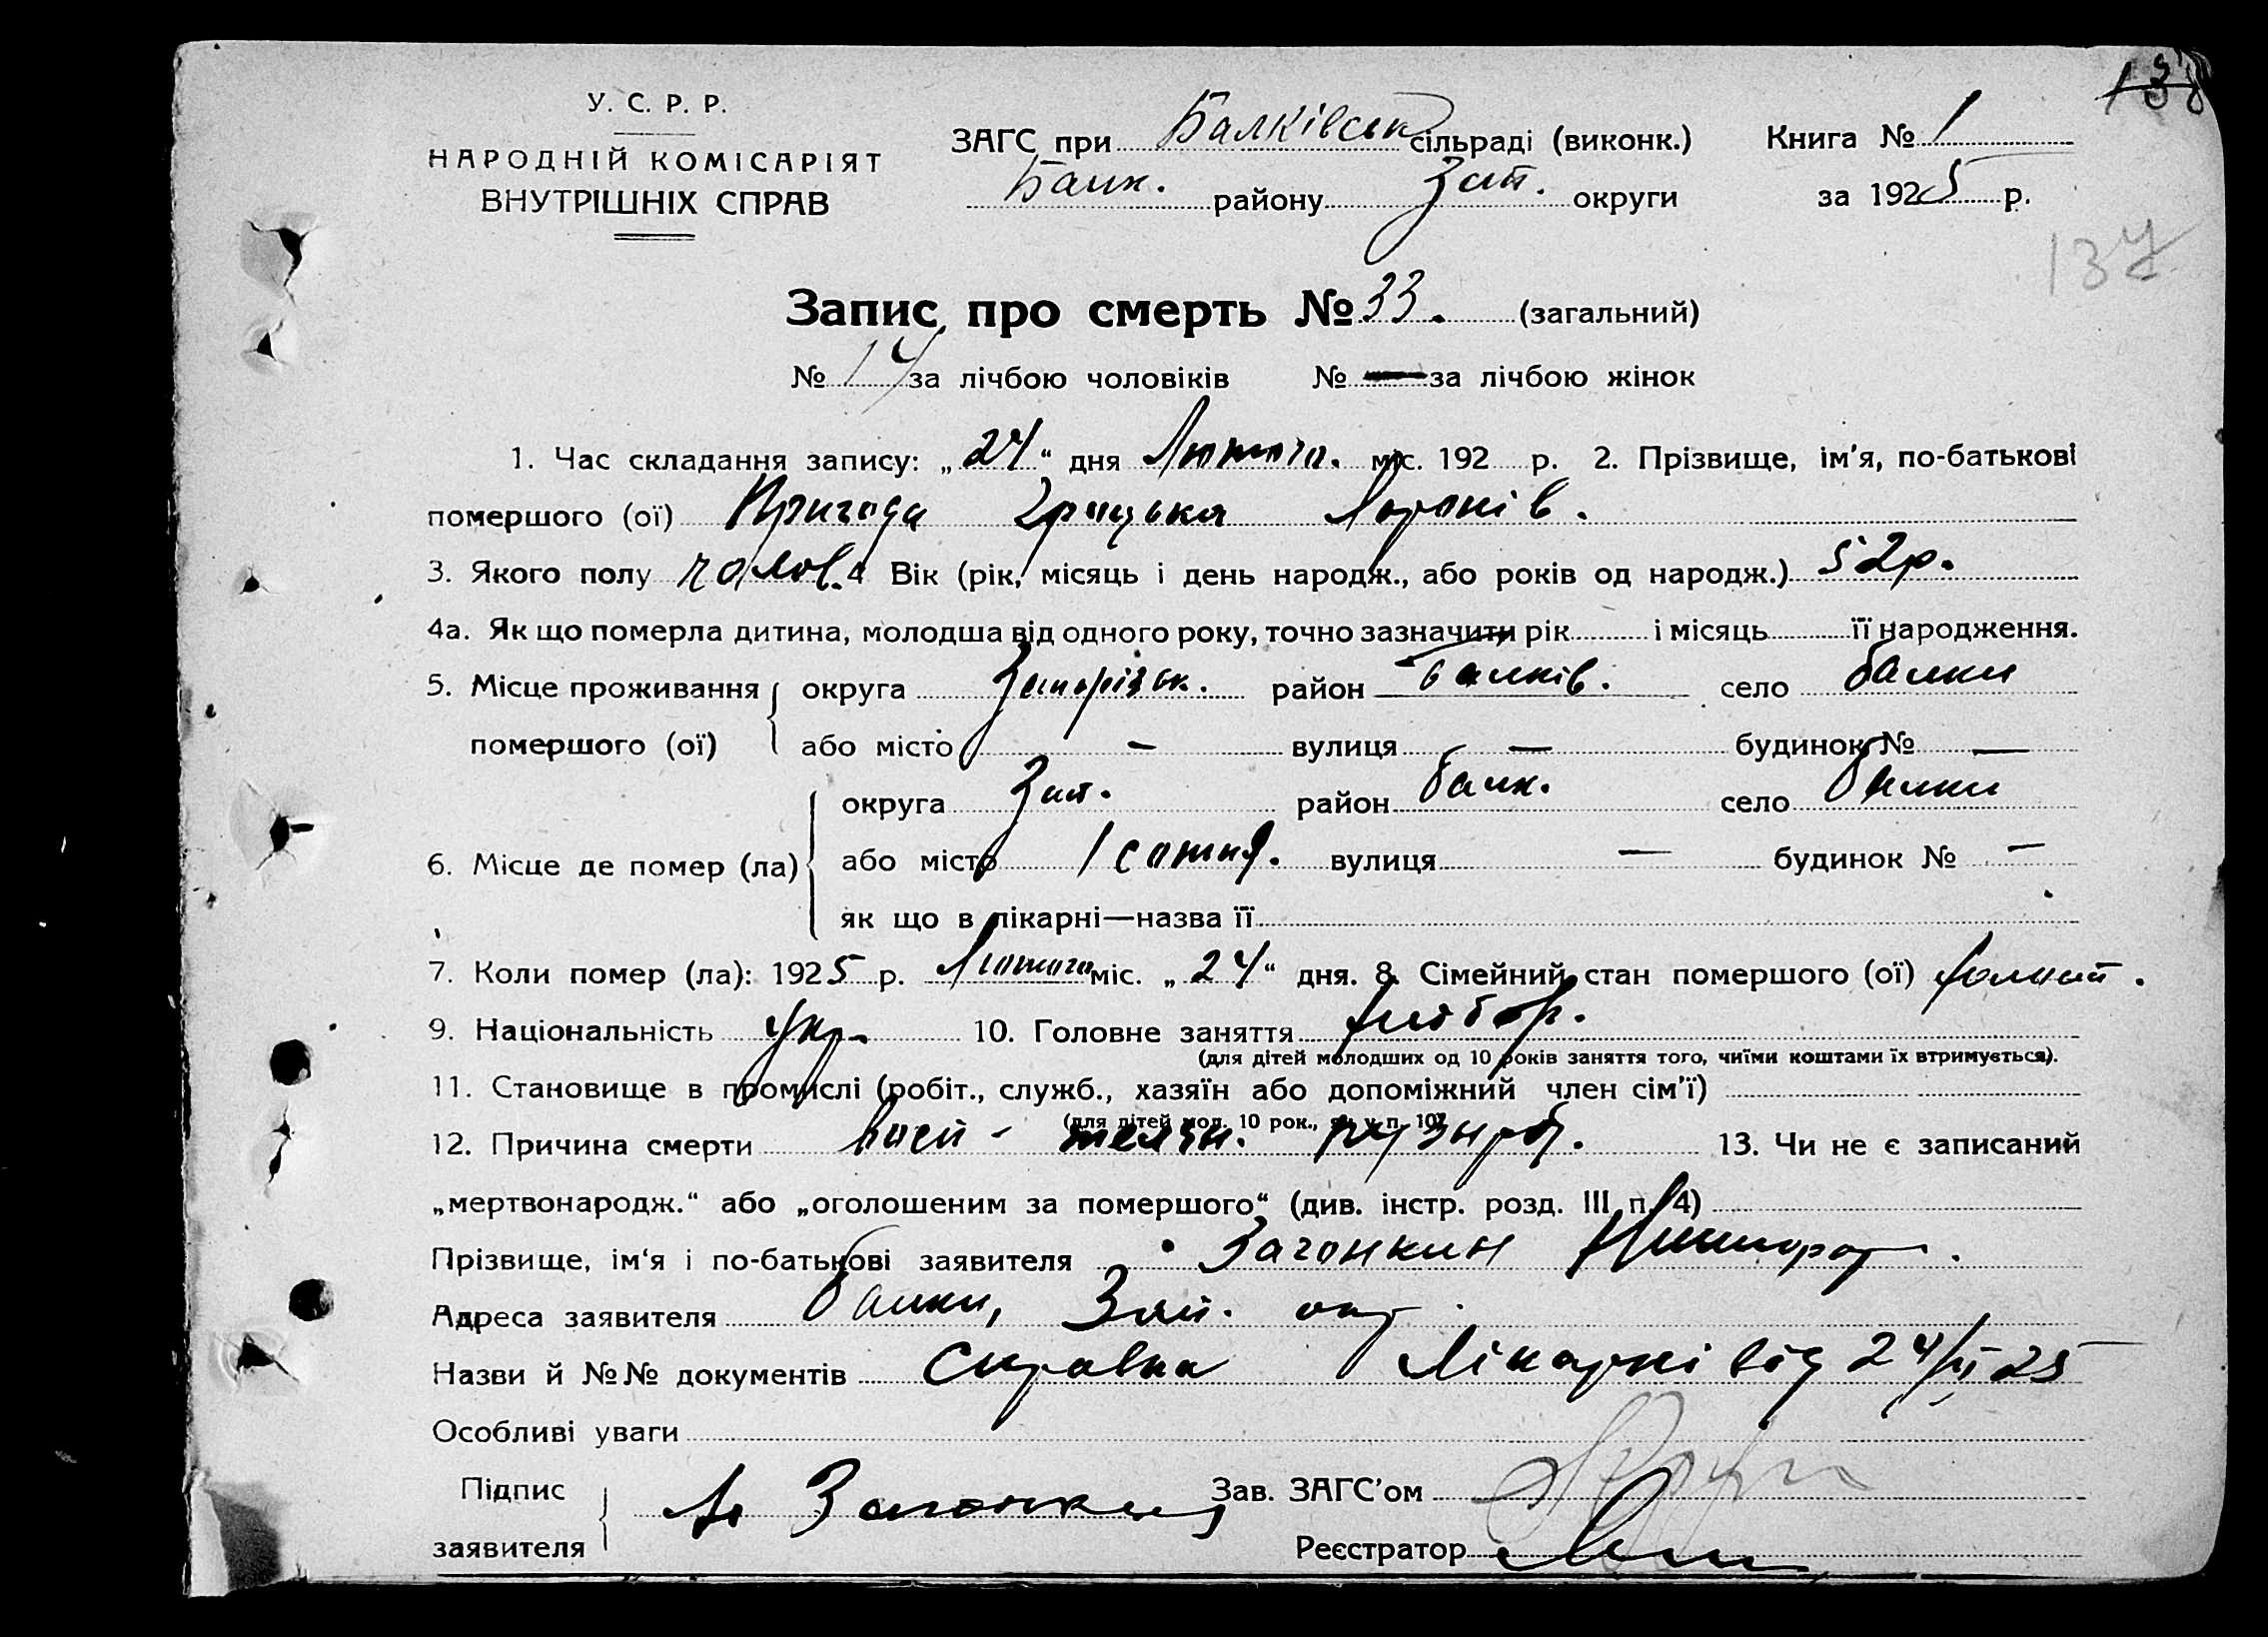 138
У. С. Р. Р.
НАРОДНІЙ КОМІСАРІЯТ
ВНУТРІШНІХ СПРАВ
ЗАГС при Балківськ сільраді (виконк.) Книга № 1
Балк. району Зап. округи за 1925 р.
137
Запис про смерть № 33. (загальний)
№ 14 за лічбою чоловіків № — за лічбою жінок
1. Час складання запису: „24“ дня Лютого. міс. 192 р. 2. Прізвище, ім'я, по-батькові
помершого (ої) Пригода Грицька
3. Якого полу чолов. 4 Вік (рік, місяць і день народж., або років од народж.) 52р.
4а. Як що померла дитина, молодша від одного року, точно зазначити рік і місяць її народження.
5. Місце проживання округа Запорізьк. район балків. село балки
помершого (ої) або місто — вулиця — будинок № —
округа Зап. район балк. село балки
6. Місце де помер (ла) або місто 1 сотня. вулиця — будинок № —
як що в лікарні—назва її
7. Коли помер (ла): 1925 р. Лютого міс. „24“ дня. 8. Сімейний стан помершого (ої)
9. Національність укр. 10. Головне заняття хлібор.
(для дітей молодших од 10 років заняття того, чиїми коштами їх втримується).
11. Становище в промислі (робіт., служб., хазяїн або допоміжний член сім'ї)
(для дітей мол. 10 рок., як у п. 10)
12. Причина смерти 13. Чи не є записаний
„мертвонародж.“ або „оголошеним за помершого“ (див. інстр. розд. III п. 4)
Прізвище, ім'я і по-батькові заявителя Загонкин
Адреса заявителя балки, Зап. окр.
Назви й №№ документів Справка Лікарні від 24/II 25
Особливі уваги
Підпис Загонкин Зав. ЗАГС'ом
заявителя Реєстратор